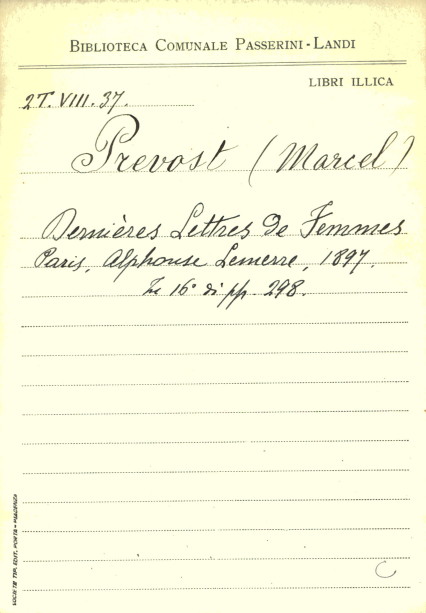 BIBLIOTECA COMUNALE PASSERINI-LANDI
LIBRI ILLICA
2T. VIII. 37.
Prevost (Marcel)
Dernières Lettres de Femmes
Paris, Alphonse Lemerre, 1897.
In 16° di pp. 298.
C